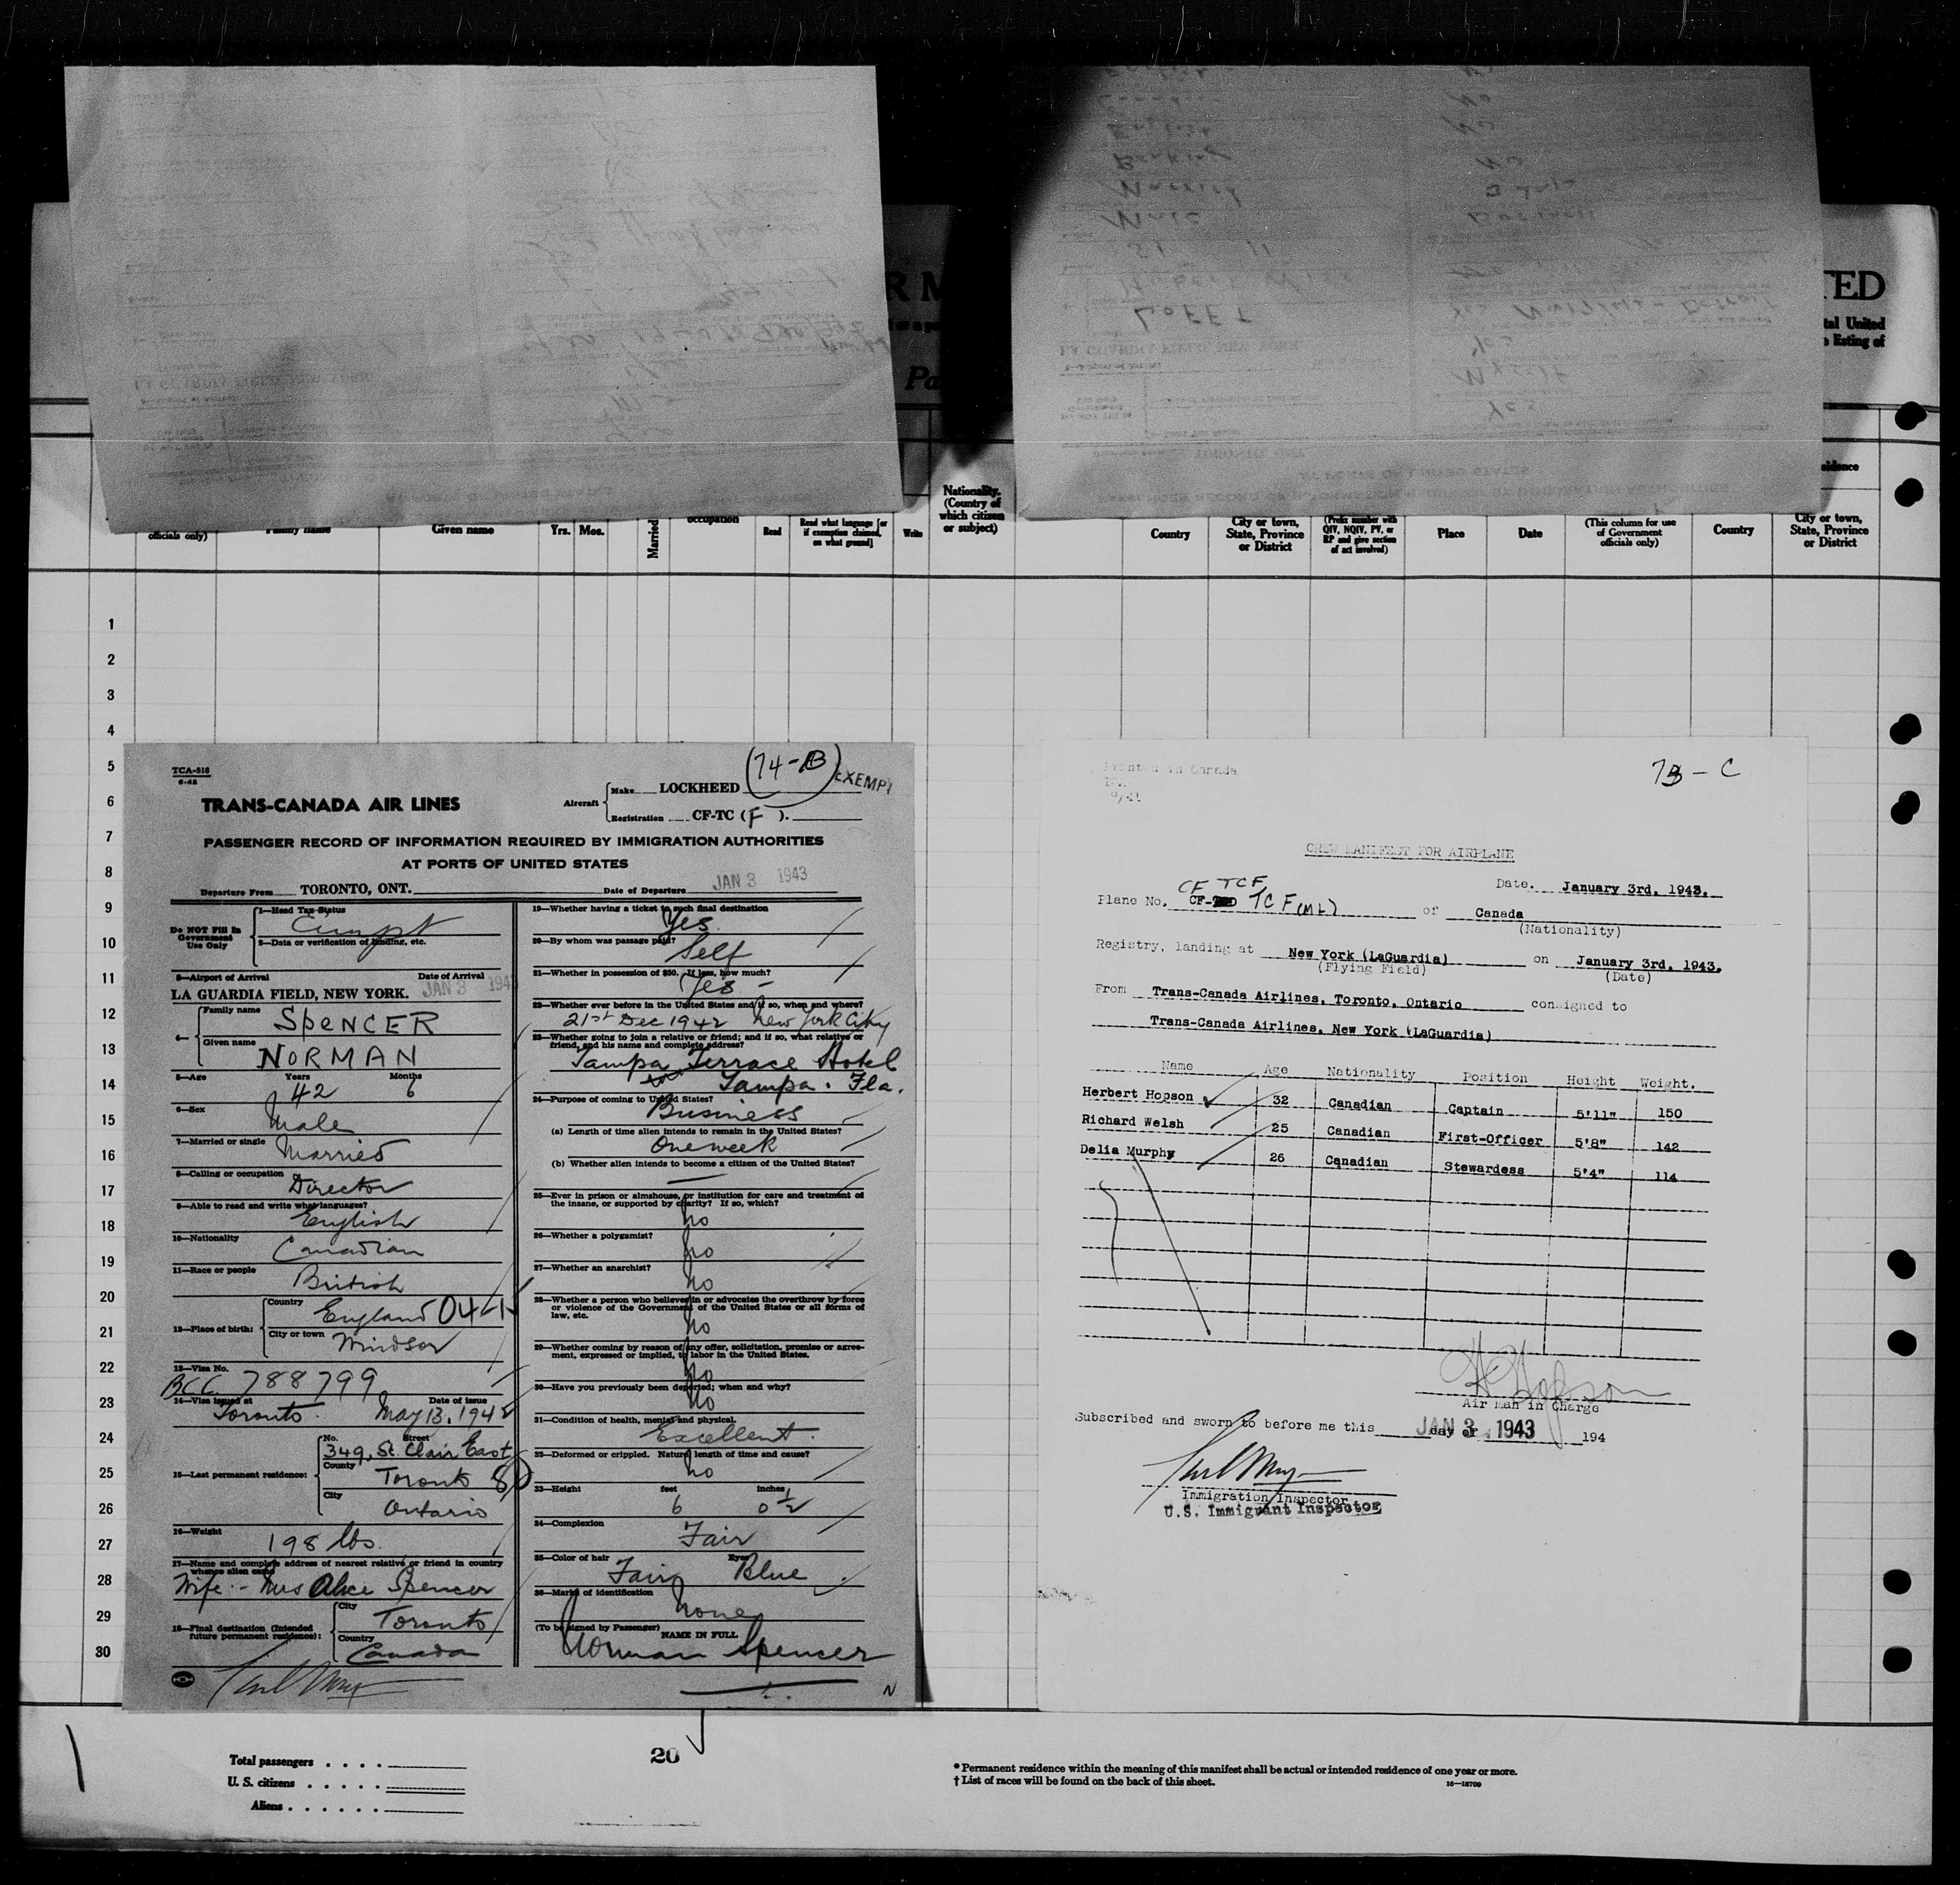 TED
tal United
Esting of
R M
Pa
officials only)
Family name
Given name
Yrs. Mos.
Married
occupation
Read
Read what language [or
if exemption claimed,
on what ground]
Write
Nationality.
(Country of
which citizen
or subject)
Country
City or town,
State, Province
or District
(Prefix number with
QIV, NQIV, PV, or
RP and give section
of act involved)
Place
Date
(This column for use
of Government
officials only)
Country
City or town,
State, Province
or District
1
2
3
4
5
6
7
8
9
10
11
12
13
14
15
16
17
18
19
20
21
22
23
24
25
26
27
28
29
30
TCA-516
6-42
(74-B)
EXEMPT
TRANS-CANADA AIR LINES
Aircraft
Make LOCKHEED
Registration CF-TC (F).
PASSENGER RECORD OF INFORMATION REQUIRED BY IMMIGRATION AUTHORITIES
AT PORTS OF UNITED STATES
Departure From TORONTO, ONT. Date of Departure JAN 3 1943
Do NOT Fill In
Government
Use Only
1—Head Tax Status
Exempt
2—Data or verification of landing, etc.
3—Airport of Arrival Date of Arrival
LA GUARDIA FIELD, NEW YORK. JAN 3 1943
4— Family name SPENCER
Given name NORMAN
5—Age Years 42 Months 6
6—Sex Male
7—Married or single Married
8—Calling or occupation Director
9—Able to read and write what languages?
English
10—Nationality Canadian
11—Race or people British
12—Place of birth: Country England 04-1
City or town Windsor
13—Visa No.
BCC. 788799
14—Visa issued at Toronto. Date of issue May 13, 194
15—Last permanent residence:
No. Street
349, St. Clair East
County Toronto
City Ontario
16—Weight 198 lbs.
17—Name and complete address of nearest relative or friend in country
whence alien came
Wife:- Mrs Alice Spencer
18—Final destination (Intended
future permanent residence):
City Toronto
Country Canada
19—Whether having a ticket to such final destination
Yes
20—By whom was passage paid?
Self
21—Whether in possession of $50. If less, how much?
Yes -
22—Whether ever before in the United States and if so, when and where?
21st Dec 1942 New York City
23—Whether going to join a relative or friend; and if so, what relative or
friend, and his name and complete address?
Tampa Terrace Hotel
Tampa. Fla.
24—Purpose of coming to United States?
Business
(a) Length of time alien intends to remain in the United States?
One week
(b) Whether alien intends to become a citizen of the United States?
—
25—Ever in prison or almshouse, or institution for care and treatment of
the insane, or supported by charity? If so, which?
no
26—Whether a polygamist?
no
27—Whether an anarchist?
no
28—Whether a person who believes in or advocates the overthrow by force
or violence of the Government of the United States or all forms of
law, etc.
no
29—Whether coming by reason of any offer, solicitation, promise or agree-
ment, expressed or implied, to labor in the United States.
no
30—Have you previously been deported; when and why?
no
31—Condition of health, mental and physical.
Excellent.
32—Deformed or crippled. Nature, length of time and cause?
no
33—Height feet 6 inches 0 ½
34—Complexion
Fair
35—Color of hair Fair Eyes Blue
36—Marks of identification
none
(To be signed by Passenger) NAME IN FULL
Norman Spencer
N
Printed in Canada
9/41
73-C
CREW MANIFEST FOR AIRPLANE
Date. January 3rd, 1943.
CF TCF
Plane No. CF- TCF (ML) of Canada
(Nationality)
Registry, landing at New York (LaGuardia) on January 3rd, 1943.
(Flying Field) (Date)
From Trans-Canada Airlines, Toronto, Ontario consigned to
Trans-Canada Airlines, New York (LaGuardia)
Name Age Nationality Position Height Weight.
Herbert Hopson 32 Canadian Captain 5'11" 150
Richard Welsh 25 Canadian First-Officer 5'8" 142
Delia Murphy 26 Canadian Stewardess 5'4" 114
H Hopson
Air Man in Charge
Subscribed and sworn to before me this JAN 3 day of 1943 194
Immigration Inspector
U.S. Immigrant Inspector
Total passengers
U. S. citizens
Aliens
20
* Permanent residence within the meaning of this manifest shall be actual or intended residence of one year or more.
† List of races will be found on the back of this sheet.
16—18709